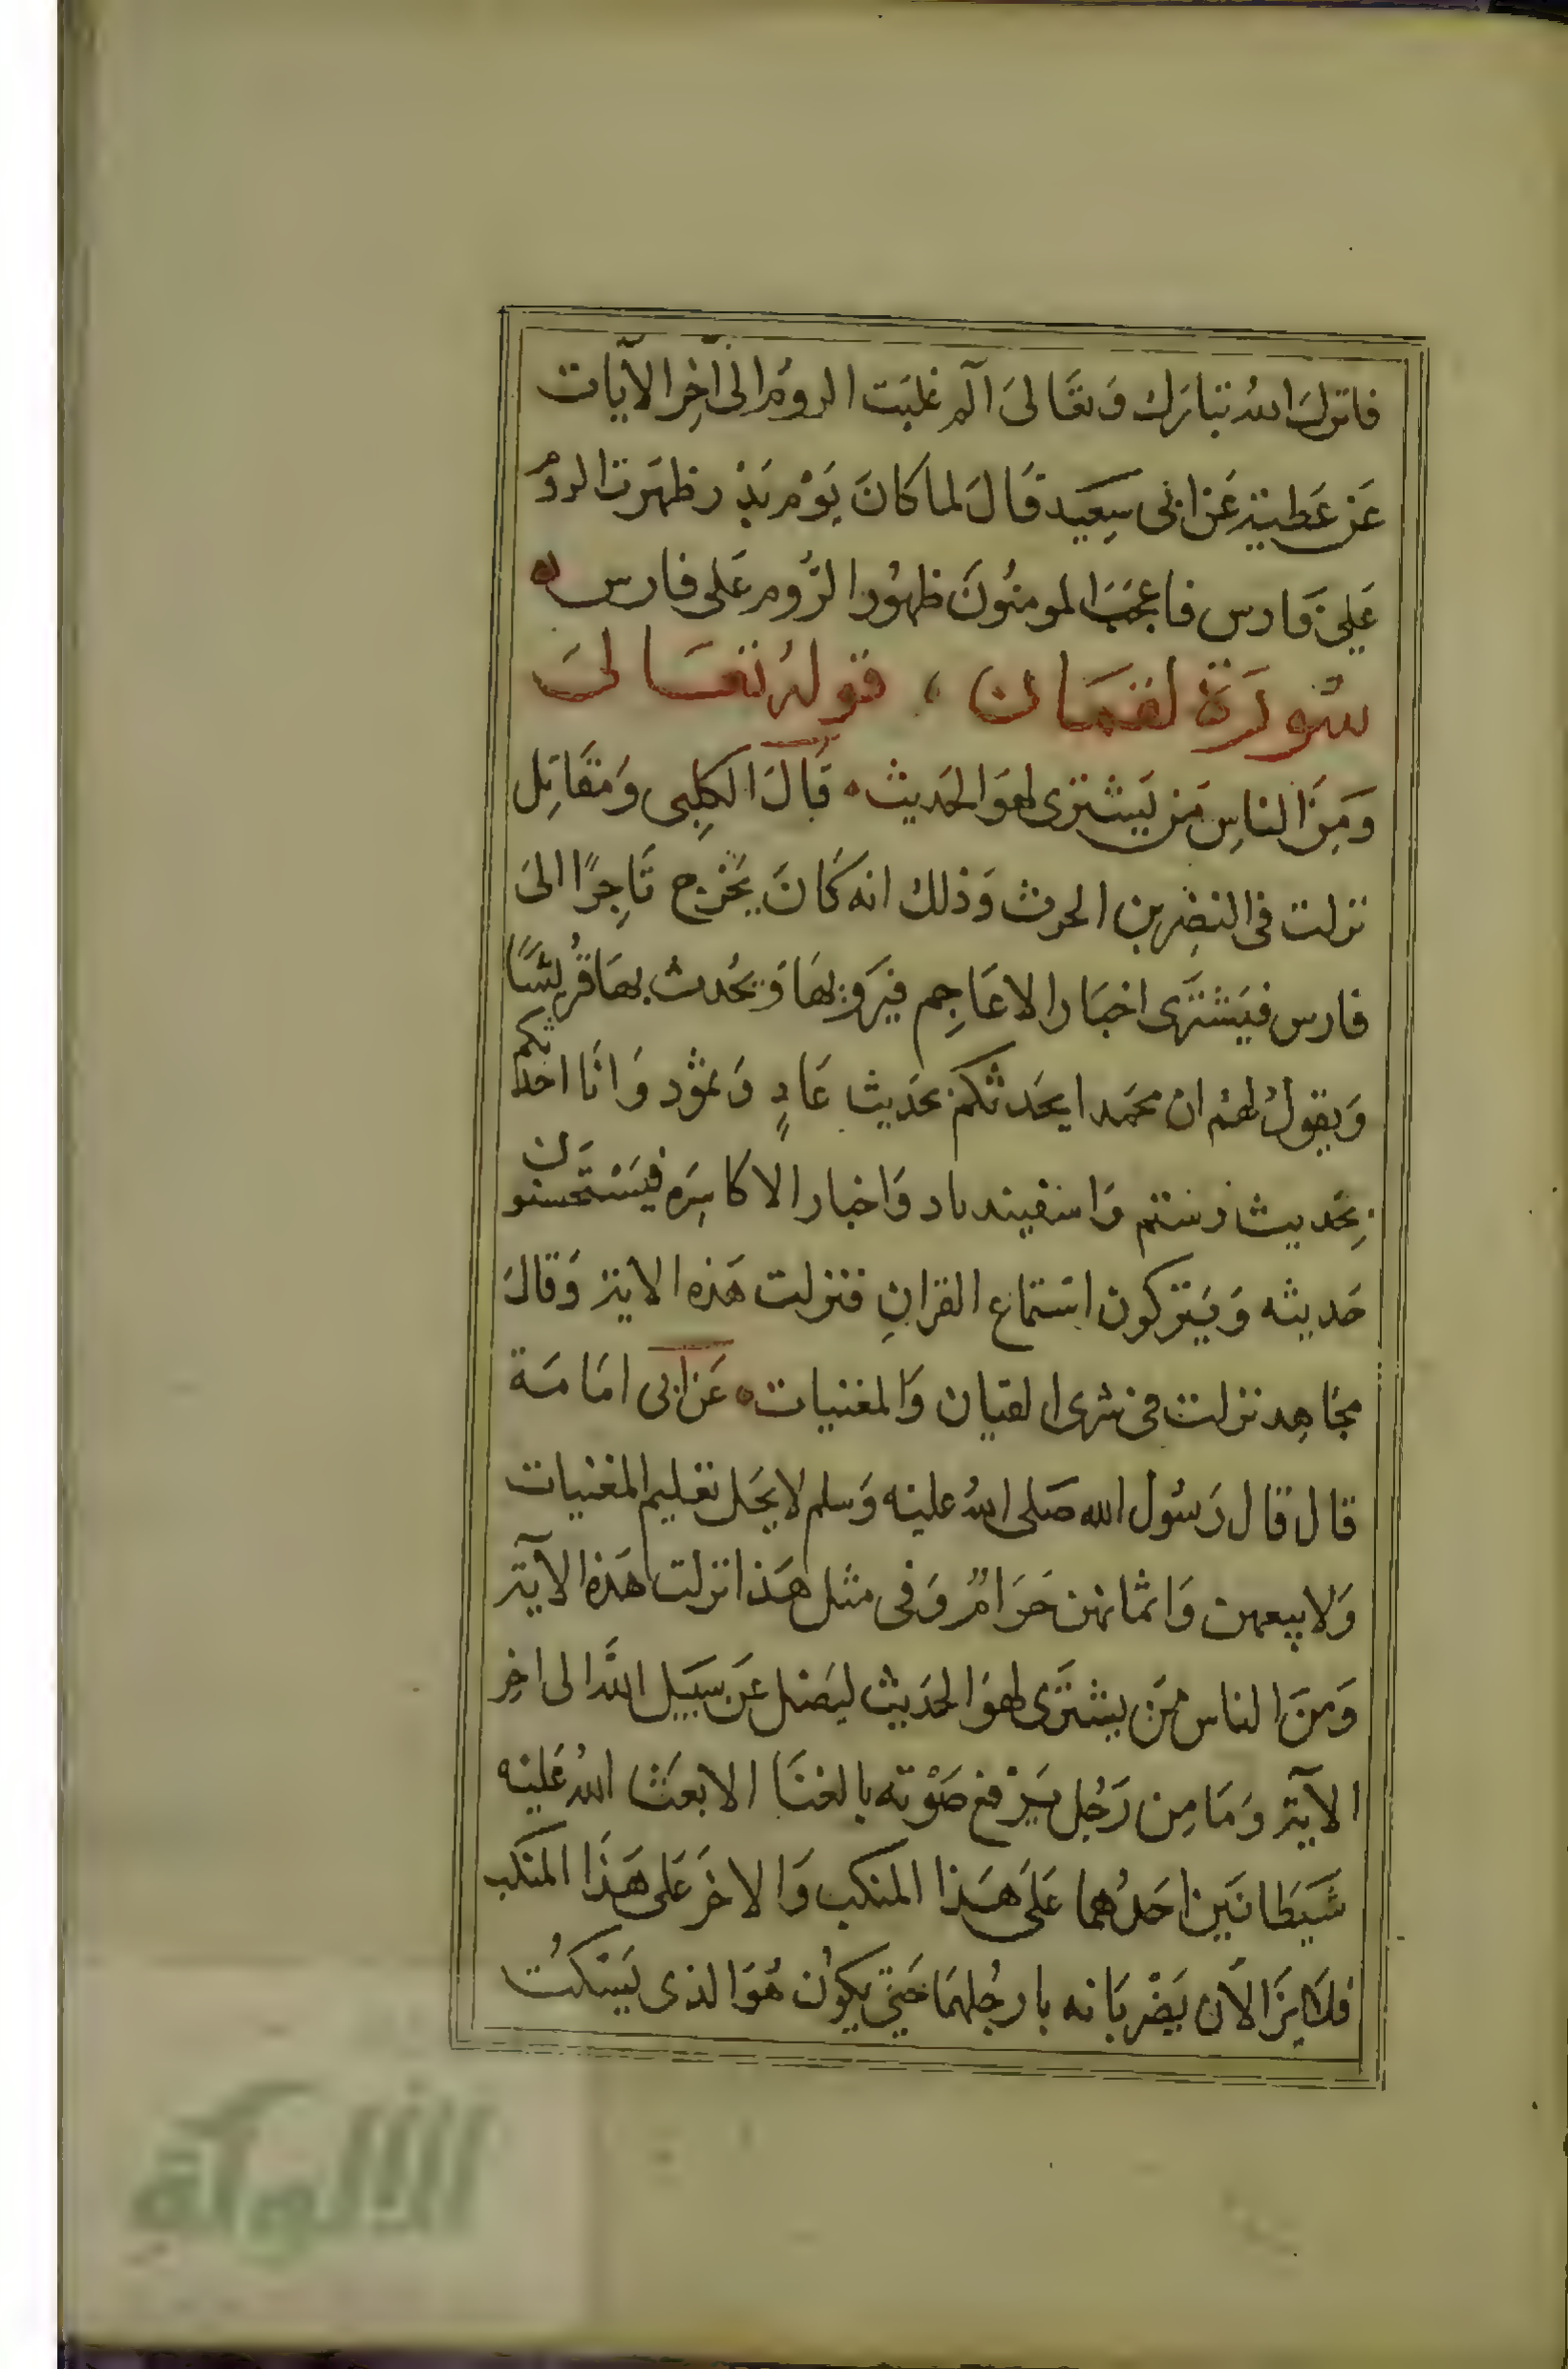 فانزلَ اللهُ تبارَك وَتعَالىَ آلم غلبَت الرومُ الىَ آخِر الآيات
عَن عَطيةِ عَن ابى سِعَيد قَالَ لما كانَ يَوْم بَدْر ظهَرت الرومُ
عَلىَ فَارس فاعجَبَ المومنُونَ ظهُور الرُّوم عَلى فارس
سُورَة لقمَان ، قولهُ تعَالىَ
وَمِنَ الناسِ مَن يَشترى لهوَ الحَديث قَالَ الكلِبى وَمقَاتِل
نزلت فى النضِر بن الحرث وَذلك انه كَانَ يَخْرج تَاجِرًا الىَ
فارس فيَشترَى اخبَار الاعَاجِم فيَروِيهَا وَيحُدث بهَا قُريشًا
وَيقولُ لهُم ان محَمدا يحَدثكم بحَديث عَادٍ وَثموُد وَانَا احَدثكم
بِحَديث رستم وَاسفيندىاد وَاخبار الاكاسِرَه فيَسْتحسنوُن
حَديثه وَيَتركون استماع القرانِ فنزلت هَذه الايةِ وَقالَ
مجَاهِد نزلت فى شرى القيان وَالمغنيات عَن ابى امَامَة
قال قال رَسُول الله صَلى اللهُ علينه وَسلم لا يحَل تعَليم المغنيات
وَلا بيعهن وَاثمانهن حَرَامٌ وَفى مثل هَذا نزلت هَذه الآية
وَمنَ الناس مَن يشترَى لهوَ الحدَيث ليَضل عَن سَبيَل اللَّه الى اخِر
الآية وَمَا مِن رَجُل يَرْفع صَوْته بالغنَا الا بعَث اللهُ عَليَه
شَيطَانَين احَدُهما عَلىَ هَذا المنكب وَالاخَر عَلى هَذَا المنكب
فلَا يزَالَان يَضْربَانه بارجُلهمَا حَتىَ يكوُن هُوَ الذى يَسْكُت
الألوكة